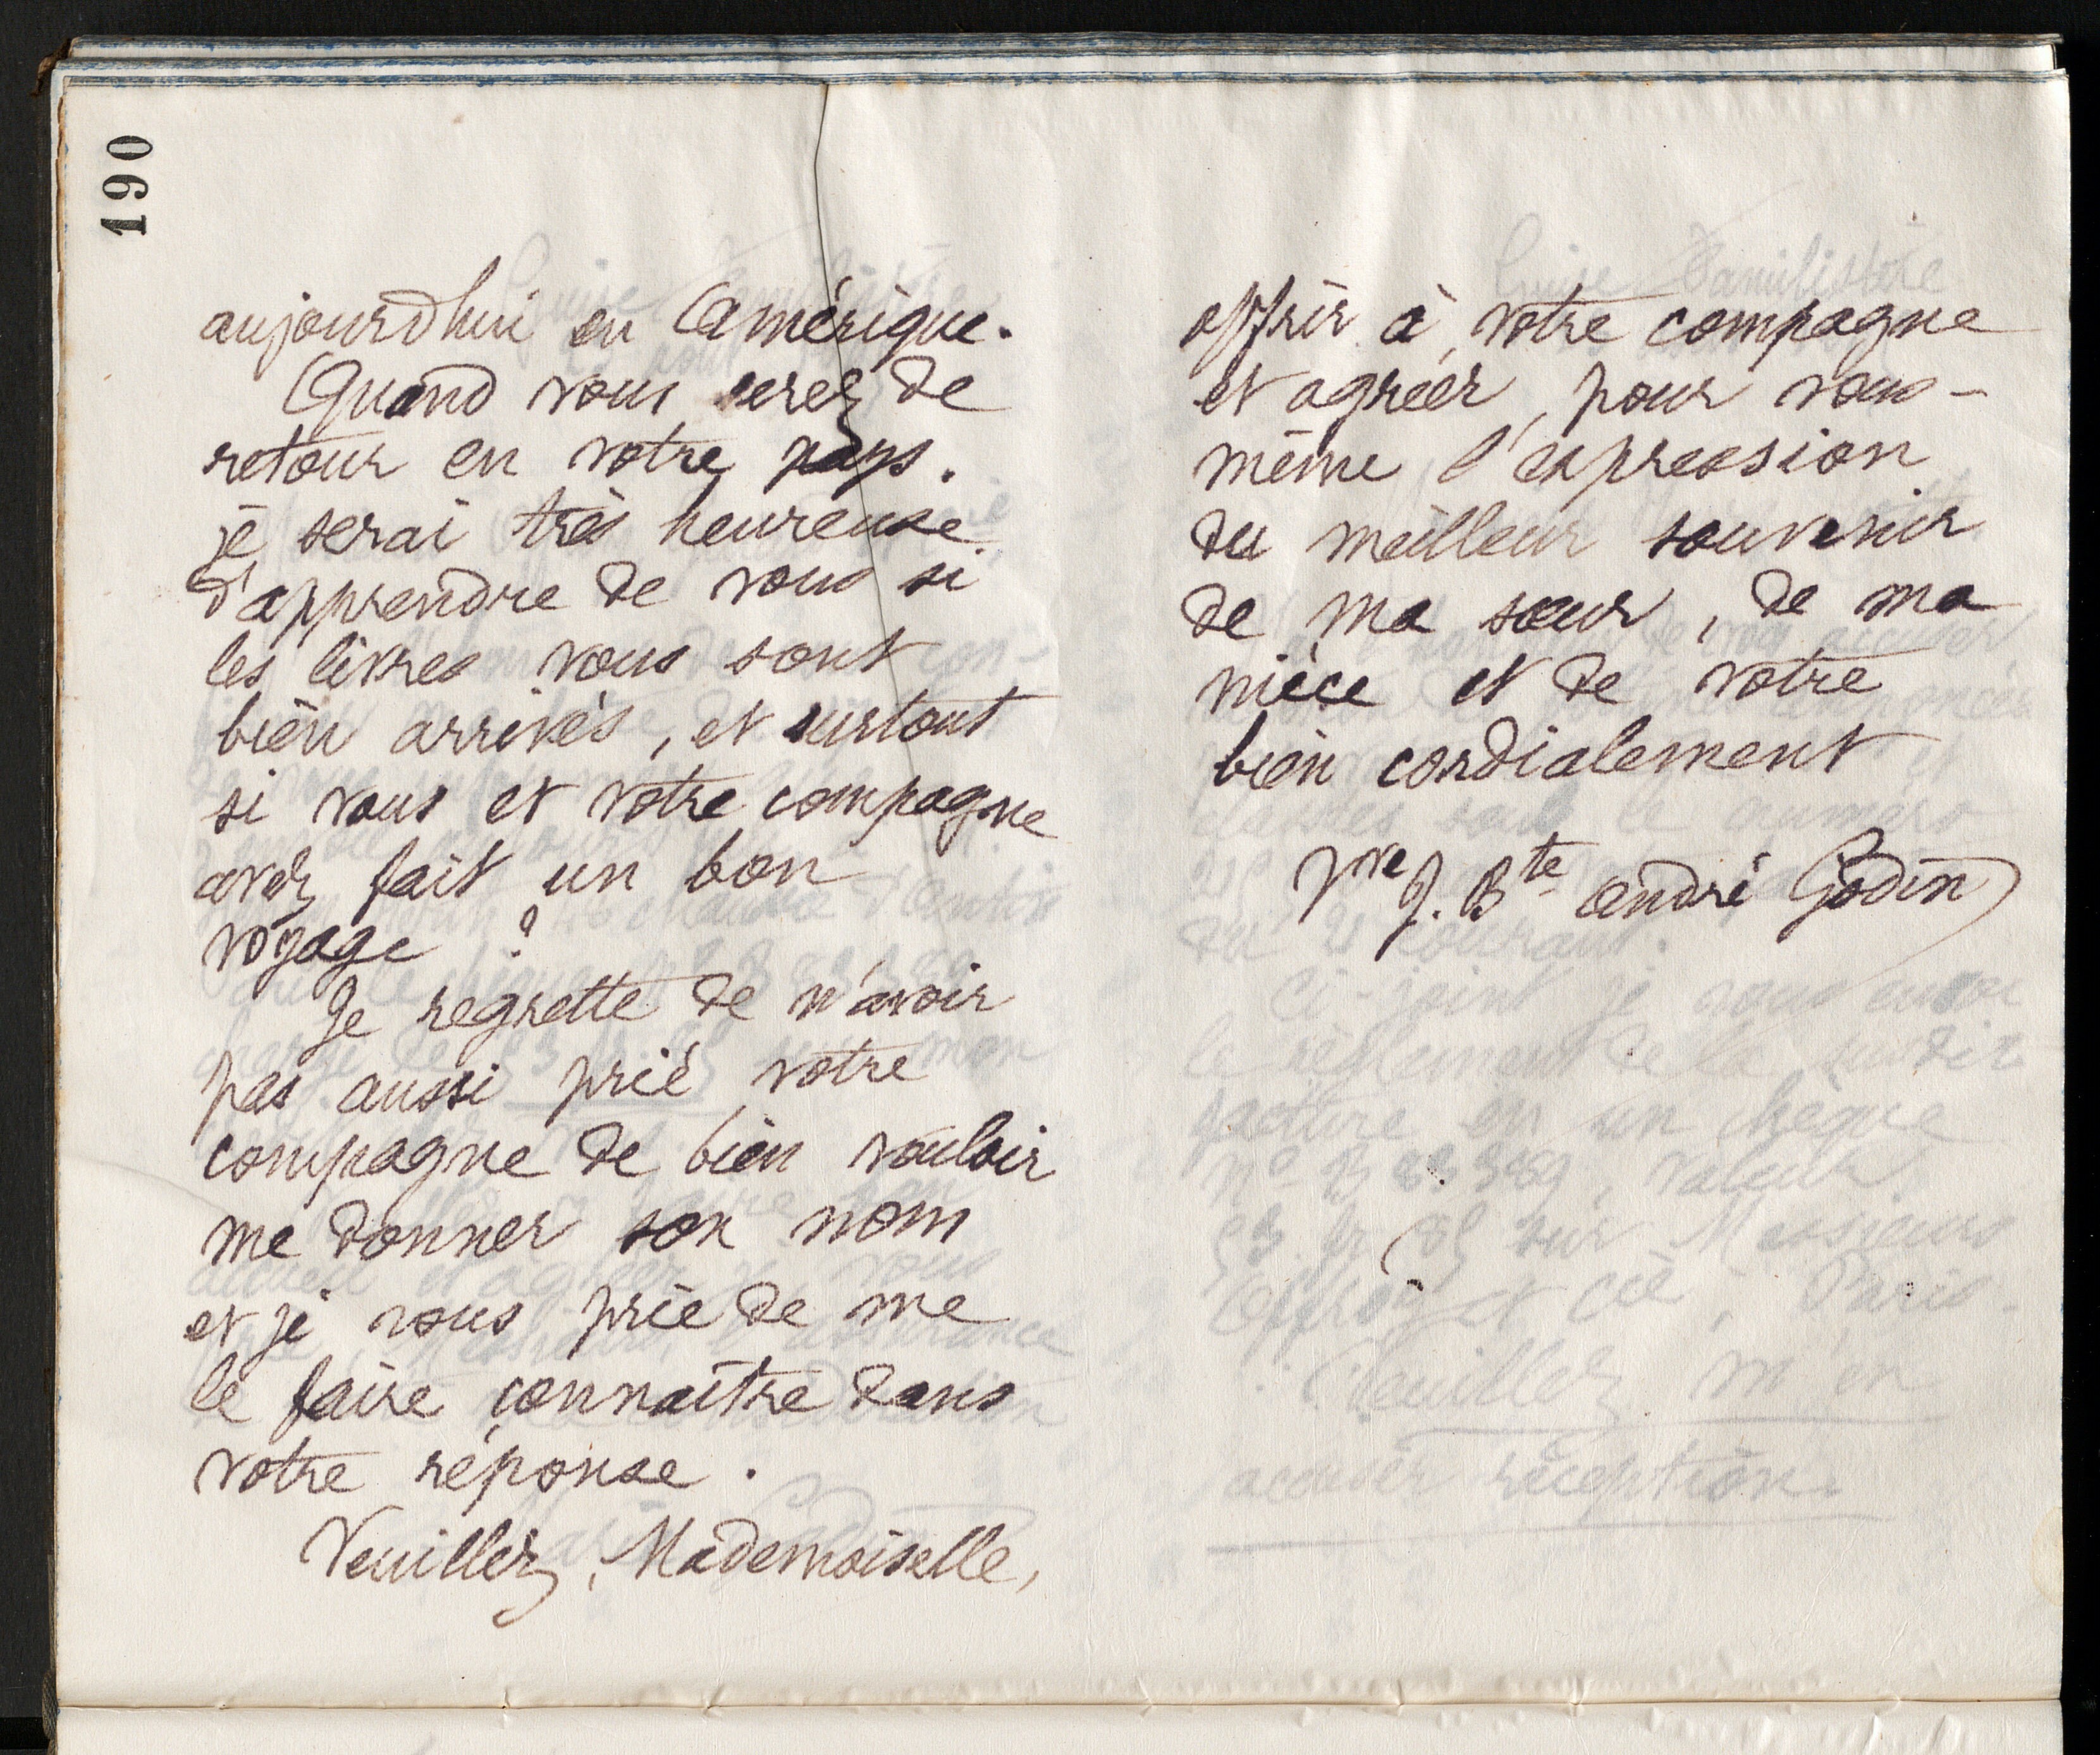 190
aujourd'hui en Amérique.
Quand vous serez de
retour en votre pays.
je serai très heureuse
d'apprendre de vous si
les livres vous sont
bien arrivés, et surtout
si vous et votre compagne
avez fait un bon
voyage ?
Je regrette de n'avoir
pas aussi prié votre
compagne de bien vouloir
me donner son nom
et je vous prie de me
le faire connaître dans
votre réponse.
Veuillez, Mademoiselle,
offrir à votre compagne
et agréer, pour vous-
même l'expression
du meilleur souvenir
de ma sœur, de ma
nièce et de votre
bien cordialement
Vve J. Bte André Godin